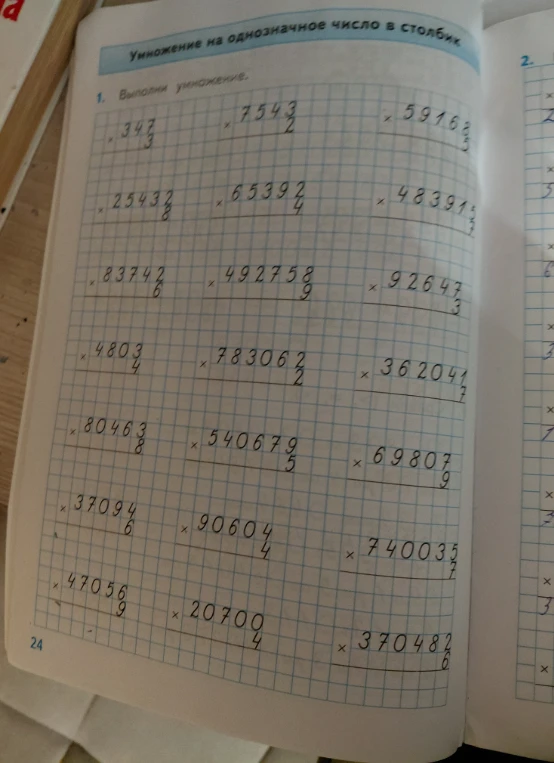 Умножение на однозначное число в столбик
1. Выполни умножение. 2.
× 347 × 7543 × 59168
3 2 5
× 25432 × 65392 × 483915
8 4 7
× 83742 × 492758 × 92647
6 9 3
× 4803 × 783062 × 362041
4 2 7
× 80463 × 540679 × 69807
8 5 9
× 37094 × 90604 × 740035
6 4 7
× 47056 × 20700 × 370482
9 4 6
24